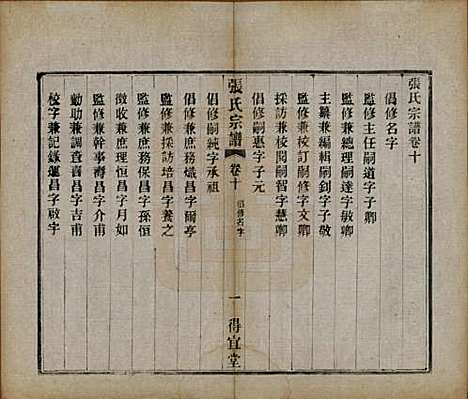 張氏宗譜卷十
倡修名字
監修主任嗣道字子卿
監修兼總理嗣達字敏卿
主纂兼編輯嗣到字子敬
監修兼校訂嗣修字文卿
採訪兼校閱嗣智字慧卿
倡修嗣惠字子元
張氏宗譜
卷十
倡修名字
一
得宜堂
倡修嗣純字承祖
倡修兼庶務熾昌字爾亭
監修兼採訪培昌字養之
監修兼庶務保昌字孫恒
徵收兼庶理恒昌字月如
監修兼幹事壽昌字介甫
勷助兼調查喜昌字吉甫
校字兼記錄運昌字啟宇